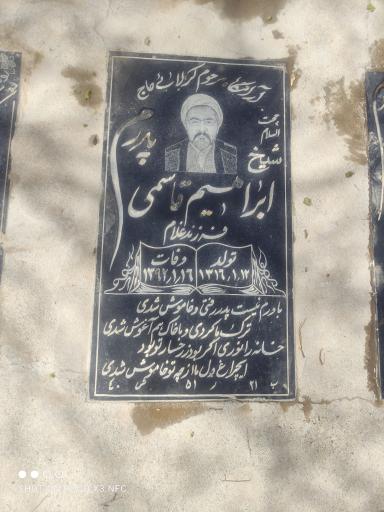 آرامگاه مرحوم کربلائی حاج
حجت
الاسلام
شیخ
پدرم
ابراهیم قاسمی
فرزند غلام
تولد
۱۳۱۶،۱،۱۳
وفات
۱۳۹۲،۱،۱۶
باورم نیست پدر رفتی و خاموش شدی
ترک ما کردی و با خاک هم آغوش شدی
خانه را نوری اگر بود ز رخسار تو بود
ای چراغ دل ما از چه تو خاموش شدی
ب ۲۱ ر ۵۱
SHOT ON POCO X3 NFC